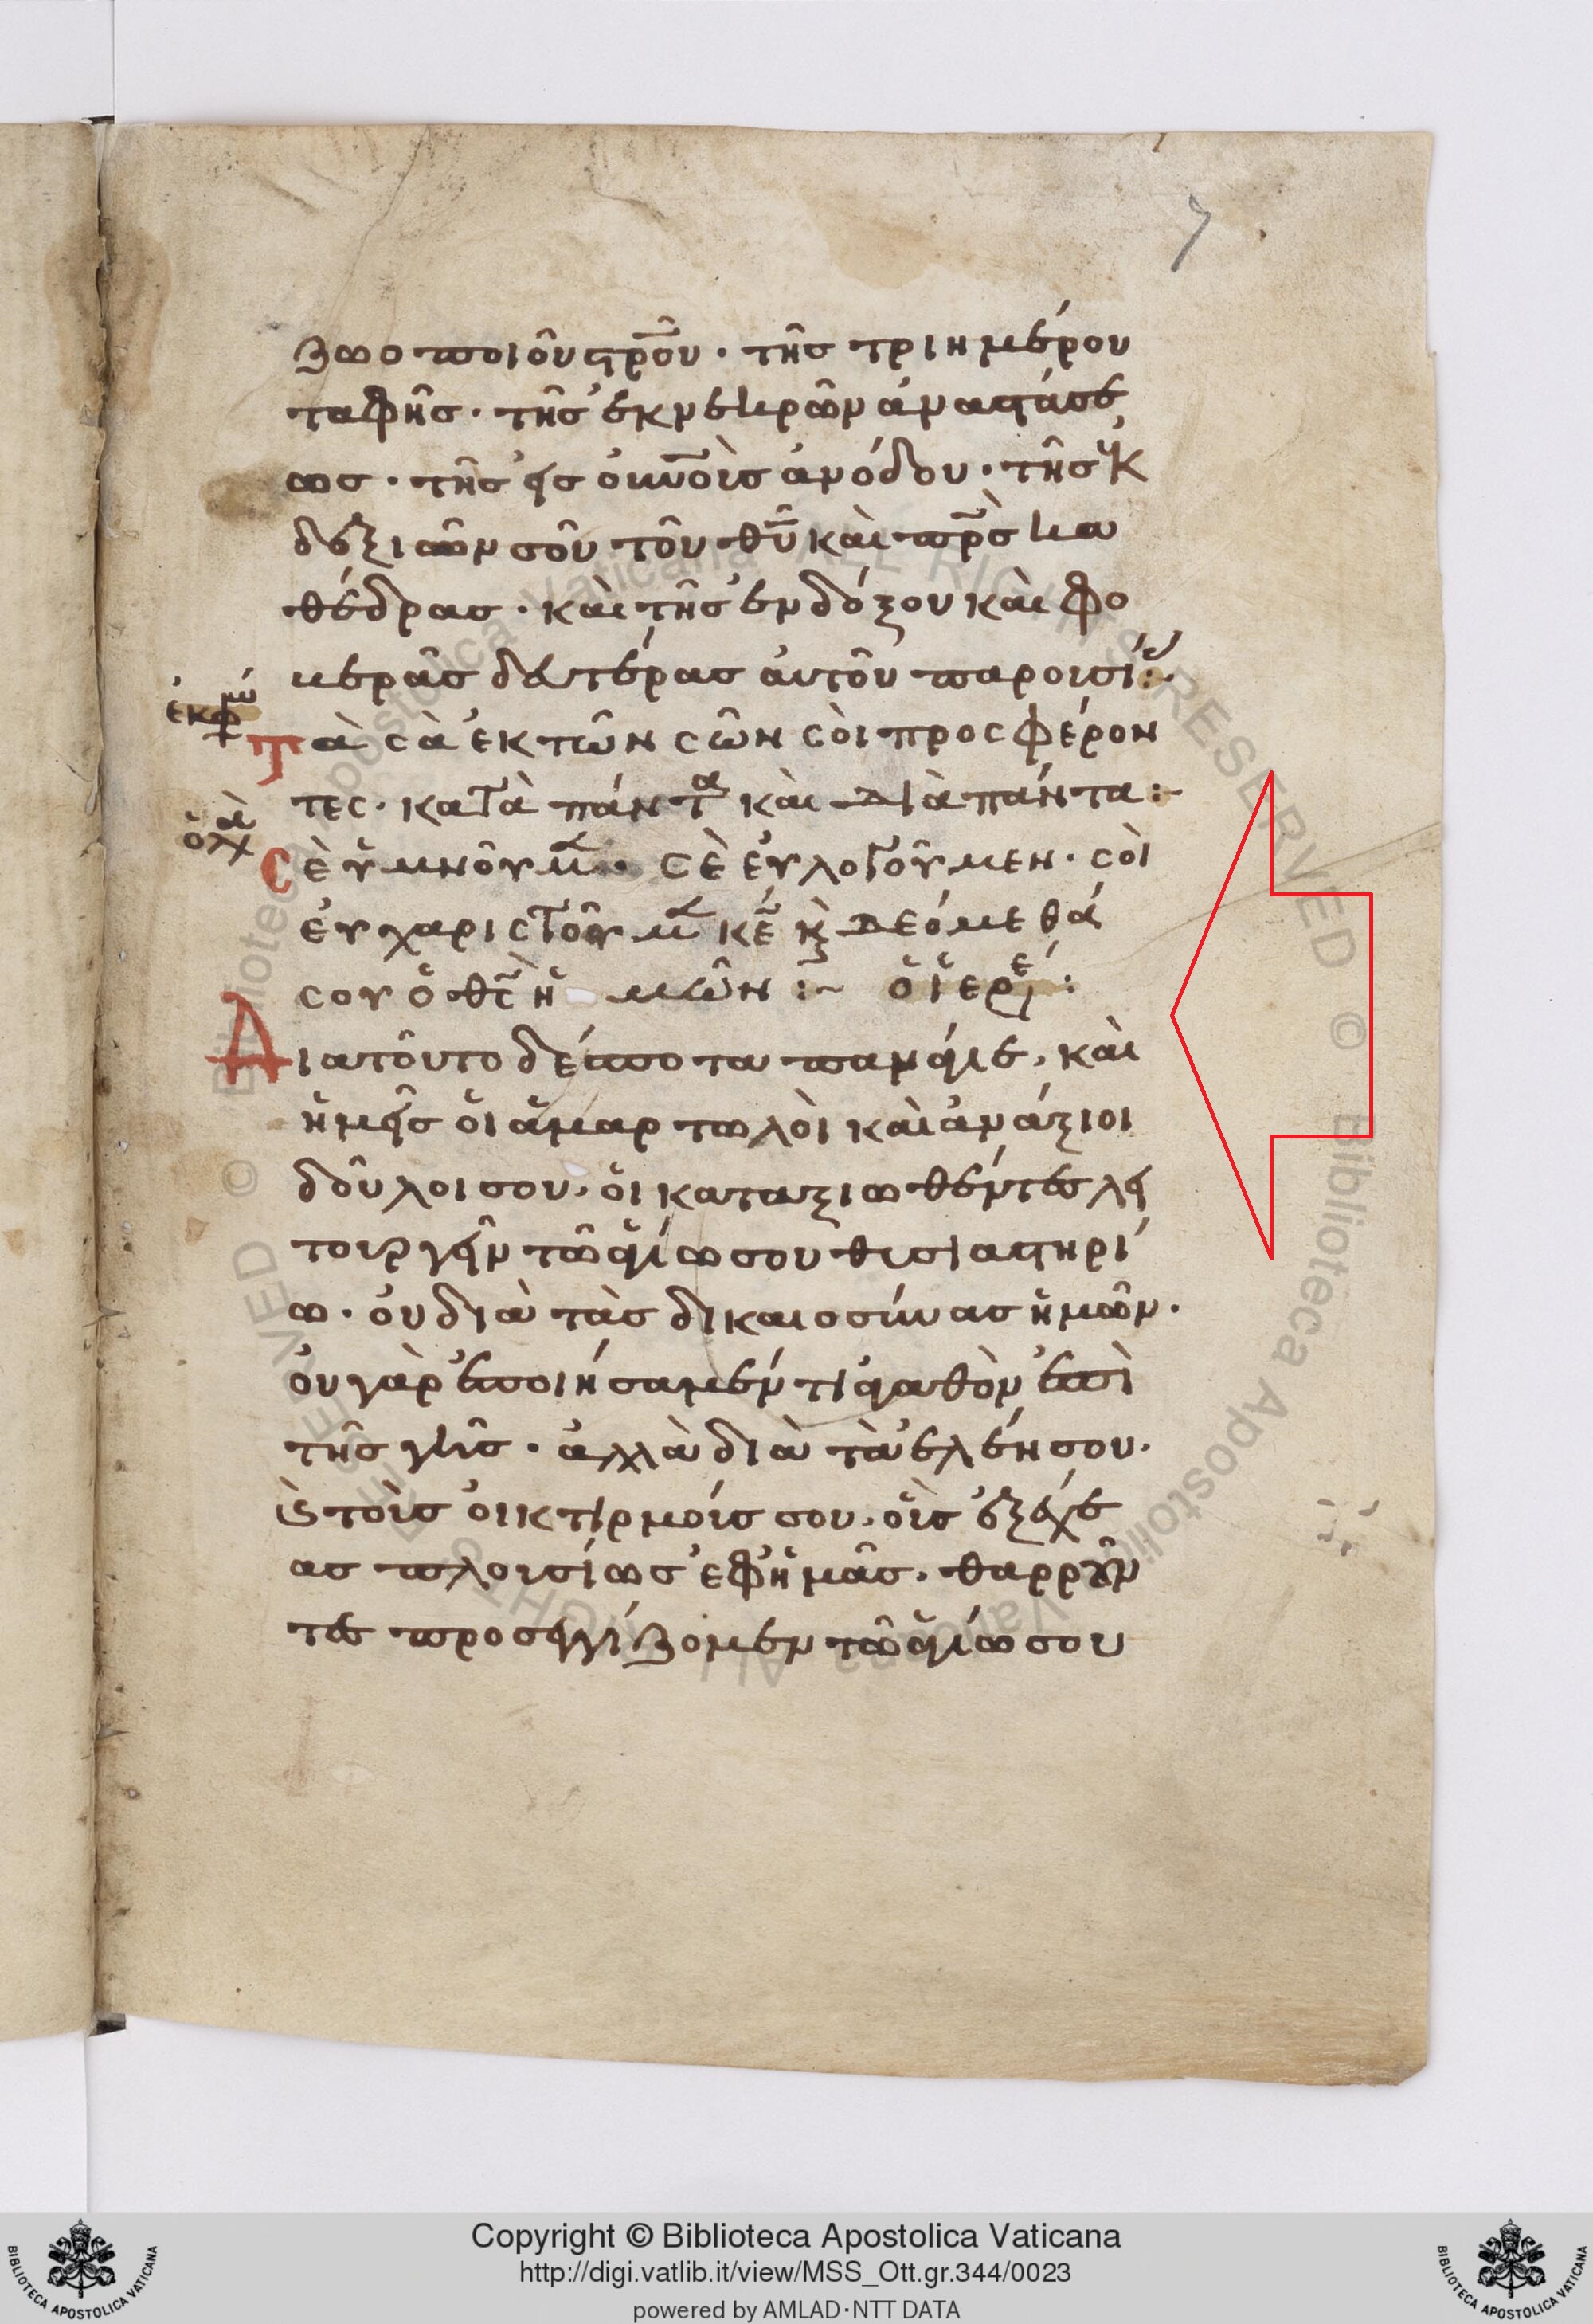 7
ζωοποιοῦ στ̅ρ̅οῦ · τῆς τριημέρου
ταφῆς · τῆς ἐκ νεκρῶν ἀναστάσε
ως · τῆς εἰς οὐ̅νοὺς ἀνόδου · τῆς ἐκ
δεξιῶν σοῦ τοῦ θ̅υ̅ καὶ π̅ρ̅ς κα
θέδρας · καὶ τῆς ἐνδόξου καὶ φο
βερᾶς δευτέρας αὐτοῦ παρουσί :
ἐκφ
Τὰ σὰ ἐκ τῶν σῶν σοὶ προσφέρον
τες · κατὰ πάντα καὶ διὰ πάντα :
ὁ λα
Σὲ ὑμνοῦμ · σὲ εὐλογοῦμεν · σοὶ
εὐχαριστοῦμ κ̅ε̅ κ δεόμεθά
σου ὁ θ̅ς̅ ἡμῶν :~ ὁ ἱερε :
Διατοῦτο δέσποτα πανάγιε, καὶ
ἡμεῖς οἱ ἁμαρτωλοὶ καὶ ἀνάξιοι
δοῦλοι σου, οἱ καταξιωθέντες λει
τουργεῖν τῶ ἁγίω σου θυσιαστηρί
ω · οὐ διὰ τὰς δικαιοσύνας ἡμῶν ·
οὐ γὰρ ἐποιήσαμέν τι ἀγαθὸν ἐπὶ
τῆς γῆς · ἀλλὰ διὰ τὰ ἐλέη σου ·
καὶ τοὺς οἰκτιρμούς σου, οὓς ἐξέχε
ας πλουσίως ἐφ' ἡμᾶς · θαρροῦν
τες προσεγγίζομεν τῶ ἁγίω σου
Copyright © Biblioteca Apostolica Vaticana
http://digi.vatlib.it/view/MSS_Ott.gr.344/0023
powered by AMLAD·NTT DATA
BIBLIOTECA APOSTOLICA VATICANA
BIBLIOTECA APOSTOLICA VATICANA